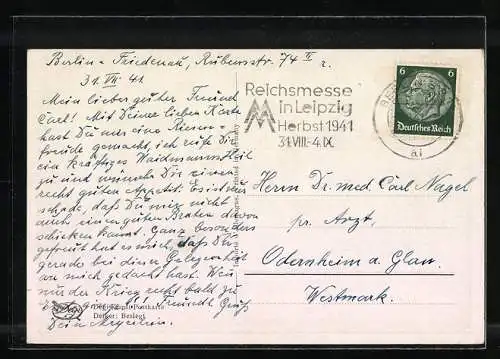 Berlin - Friedenau, Rubensstr. 74 II r.
31. VII. 41.
Mein lieber guter Freund
Carl! Mit Deiner lieben Karte
hast Du mir eine Riesen-
freude gemacht, ich rufe Dir
ein kräftiges Waidmannsheil
zu und wünsche Dir einen
recht guten Appetit. Es ist nur
schade, daß Du mir nicht
auch einen guten Braten davon
schicken kannst. Ganz besonders
gefreut hat es mich, daß Du
gerade bei dieser Gelegenheit
an mich gedacht hast. Wenn
nur der Krieg recht bald zu
Freundl. Gruß
Dein
Reichsmesse
in Leipzig
Herbst 1941
31.VIII.-4.IX.
6 6
Deutsches Reich
Herrn Dr. med. Carl Nagel
pr. Arzt,
Odernheim a. Glan.
Westmark.
Postkarte